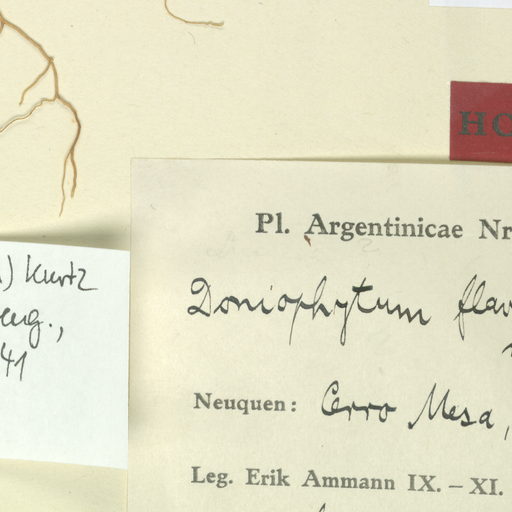 HO
Pl. Argentinicae Nr
Doniophytum flav
Neuquen: Cerro Mesa,
Leg. Erik Ammann IX. – XI.
) Kurtz
eug.,
41